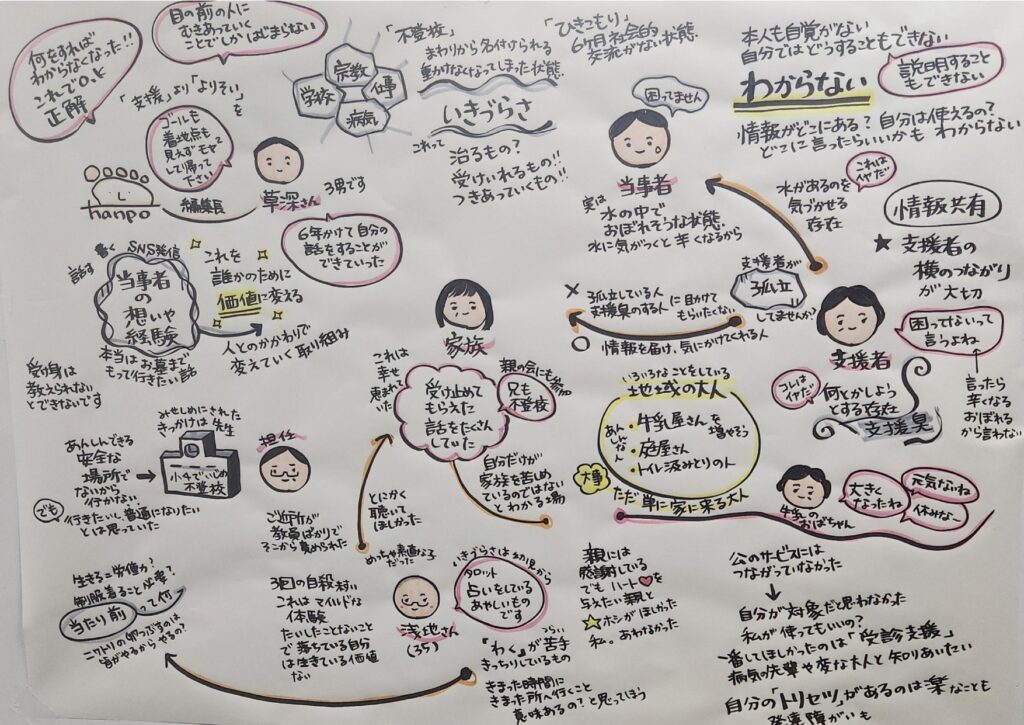 何をすれば
わからなくなった!!
これでOK
正解
目の前の人に
むきあっていく
ことでしかはじまらない
「支援」より「よりそい」を
ゴールも
着地点も
見えずモヤモヤ
して帰って
下さい
hanpo
編集長
草深さん
3男です
6年かけて自分の
話をすることが
できていった
宗教
学校
仕事
病気
「不登校」
まわりから名付けられる
動かなくなってしまった状態.
いきづらさ
これって
治るもの?
受けいれるもの!!
つきあっていくもの!!
「ひきこもり」
6ヶ月社会的
交流がない状態.
困ってません
当事者
実は
水の中で
おぼれそうな状態.
水に気がつくと辛くなるから
本人も自覚がない
自分ではどうすることもできない
わからない
説明すること
もできない
情報がどこにある?自分は使えるの?
どこに言ったらいいかも わからない
これは
イヤだ
水があるのを
気づかせる
存在
情報共有
★支援者の
横のつながり
が大切
支援者が
孤立
してませんか?
× 孤立している人
支援臭のする人 に助けて
もらいたくない
○ 情報を届け、気にかけてくれる人
支援者
困ってないって
言うよね
言ったら
辛くなる
おぼれる
から言わない
コレは
イヤだ
何とかしよう
とする存在
支援臭
書く SNS発信
話す
当事者
の
想いや
経験
これを
誰かのために
価値に変える
人とのかかわりで
変えていく取り組み
本当はお墓まで
もって行きたい話
受け身は
教えられない
とできないです
家族
これは
幸せ
恵まれて
いた
受け止めて
もらえた
話をたくさん
していた
親の会にも参加
兄も
不登校
自分だけが
家族を苦しめ
ているのではない
とわかる場
いろいろなことをしている
地域の大人
あんしんな人
・牛乳屋さんを
増やそう
・庭屋さん
・トイレ汲みとりの人
大事
ただ単に家に来る大人
牛乳の
おばちゃん
大きく
なったね
元気ないね
休みな〜
みせしめにされた
きっかけは先生
小4でいじめ
不登校
担任
あんしんできる
安全な
場所で
ないから
行かない
でも
行きたいし、普通になりたい
とは思っていた
ご近所が
教員ばかりで
そこから責められた
とにかく
聴いて
ほしかった
めっちゃ素直な子
だった
生きること労働か?
制服着ること必要?
当たり前って何
ニワトリの卵つぶすのは
頃がやるからやるの?
3回の自殺未遂
これはマイルドな
体験
たいしたことないこと
で落ちている自分
は生きている価値
ない
浅地さん
(35)
いきづらさは幼児から
タロット
占いをしている
あやしいもの
です
「わく」がつらい 苦手
きっちりしているもの
きまった時間に
きまった所へ行くこと
意味あるの?と思ってしまう
親には
感謝している
でもハート❤を
与えたい親と
☆ホシがほしかった
私。 あわなかった
公のサービスには
つながっていなかった
自分が対象だと思わなかった
私が使ってもいいの?
一番してほしかったのは「受診支援」
病気の先輩や変な大人と知りあいたい
自分の「トリセツ」があるのは楽なことも